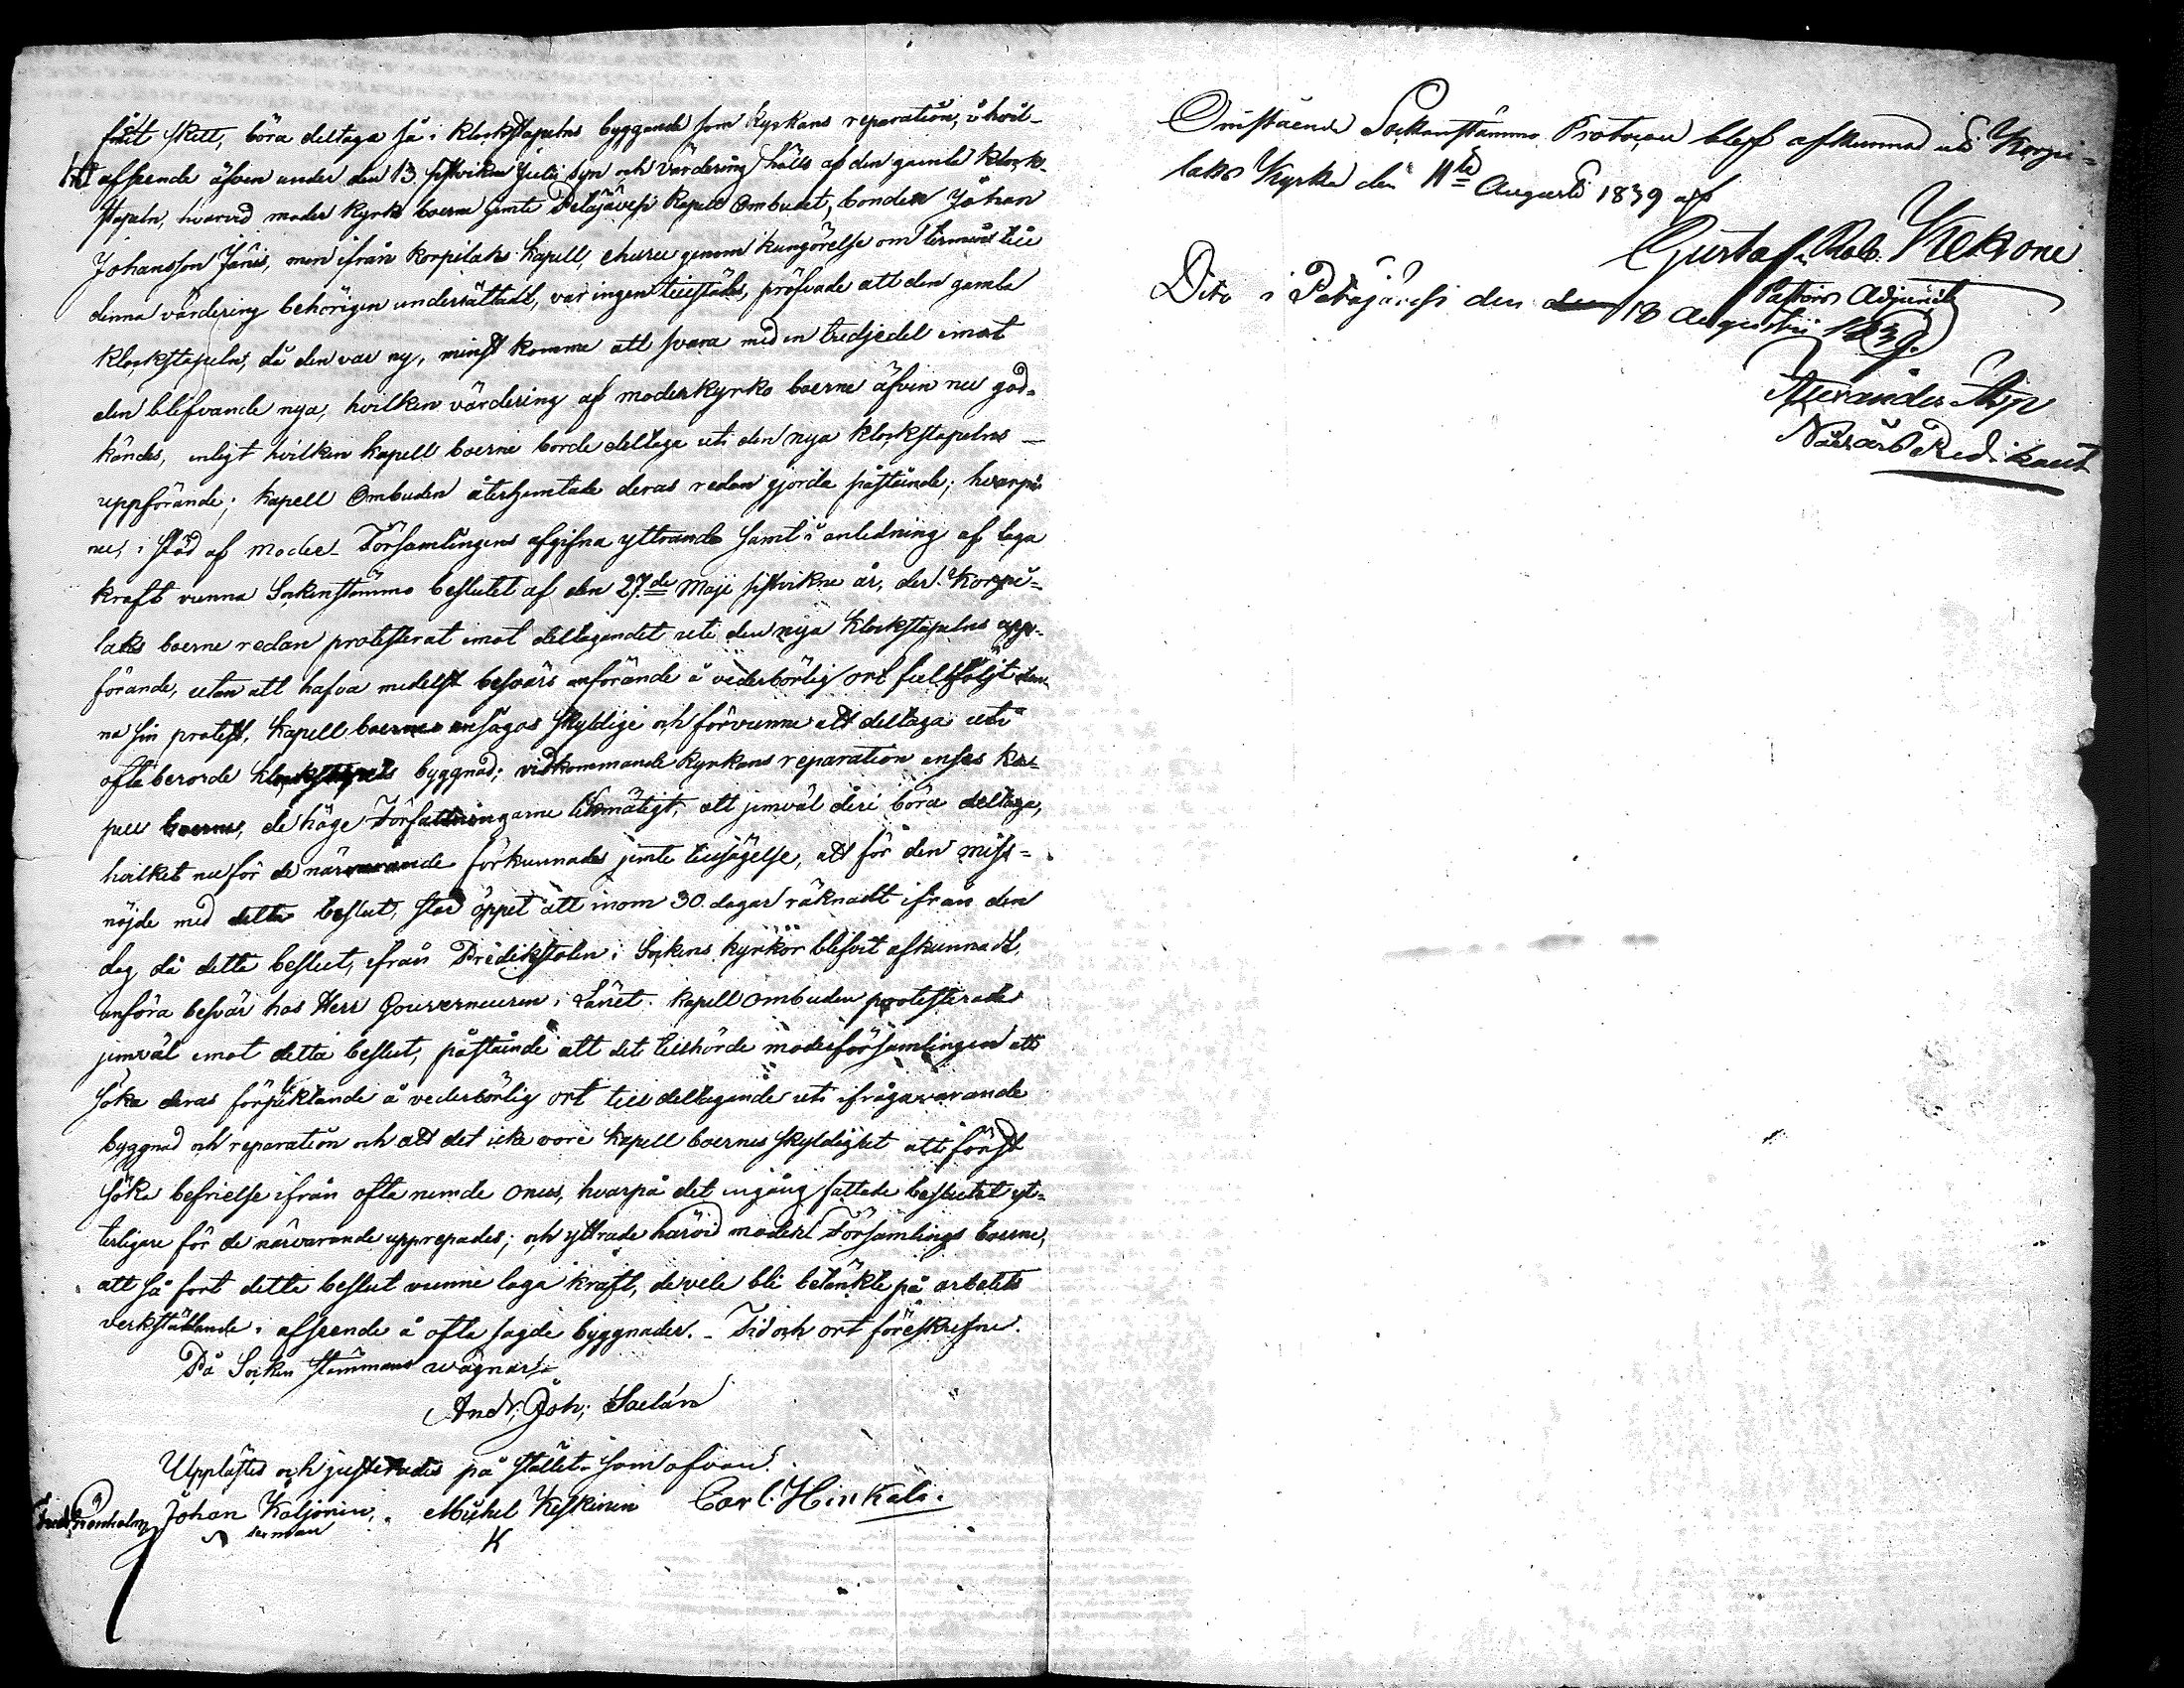 skett, böra deltaga så i klockstapelns byggande som kyrkans reparation, i hvil-
ket afseende äfven under den 13 sistvikne Julii syn och värdering hålls af den gamla klock-
stapeln, hvarvid moder kyrko boerne jemte Petäjävesi Kapell Ombudet, bonden Johan
Johansson Jänis, men ifrån Korpilaks Kapell, ehuru genom kungörelse om termin till
denna värdering behörigen underrättadt, var ingen tillstädes, pröfvade att den gamla
klockstapeln, då den var ny, minst komma att svara med en tredjedel imot
den blifvande nya, hvilken värdering af moderkyrko boerne äfven nu god-
kändes, enligt hvilken kapell boerne borde deltaga uti den nya klockstapelns
uppförande; kapell Ombuden återhemtade deras redan gjorda påstående; hvarpå
nu, i stöd af Moder Församlingens afgifna yttrande samt i anledning af laga
kraft vunna Sockenstämmo beslutet af den 27de Maji sistvikne år, der Korpi-
laks boerne redan protesterat imot deltagandet uti den nya Klockstapelns upp-
förande, utan att hafva medelst besvärs anförande å vederbörlig ort fullföljt den-
na sin protest, Kapell boerne ansågos skyldige och förvunne att deltaga uti
ofta berörde klockstapels byggnad; vidkommande Kyrkans reparation anses ka-
pell boerne, de höge Författningarne likmätigt, att jemväl deri böra deltaga,
hvilket nu för de närvarande förkunnades jemte tillsägelse, att för den miss-
nöjde med detta beslut, stod öppet att inom 30 dagar räknadt ifrån den
dag då detta beslut, ifrån Predikstolen i Sockens kyrkor blifvit afkunnadt,
anföra besvär hos Herr Gouverneuren i Länet. Kapell Ombuden protesterade
jemväl emot detta beslut, påstående att det tillhörde moderförsamlingen att
söka deras förpliktande å vederbörlig ort till deltagande uti ifrågavarande
byggnad och reparation och att det icke vore Kapell boernes skyldighet att först
söka befrielse ifrån ofta nemde onus, hvarpå det engång fattade beslutet yt-
terligare för de närvarande upprepades; och yttrade härvid moder Församlings boerne,
att så fort detta beslut vunne laga kraft, de vele bli betänkte på arbetets
verkställande i afseende å ofta sagde byggnader. Tid och ort föreskrefne.
På Socken stämmans wägnar
And. Joh. Saelan
Upplästes och justerades på stället som ofvan.
Johan Kaljonin, Michel Keskinen Carl Hinkala.
K
Omstående Sockenstämmo Protocoll blef afkunnad uti Korpi-
laks Kyrka den 11te Augusti 1839 af
Gustaf Rob. Kekoni
Pastors Adjunct
Dito i Petäjävesi den 18 Augusti 1839.
Alexander Alop
Predikant